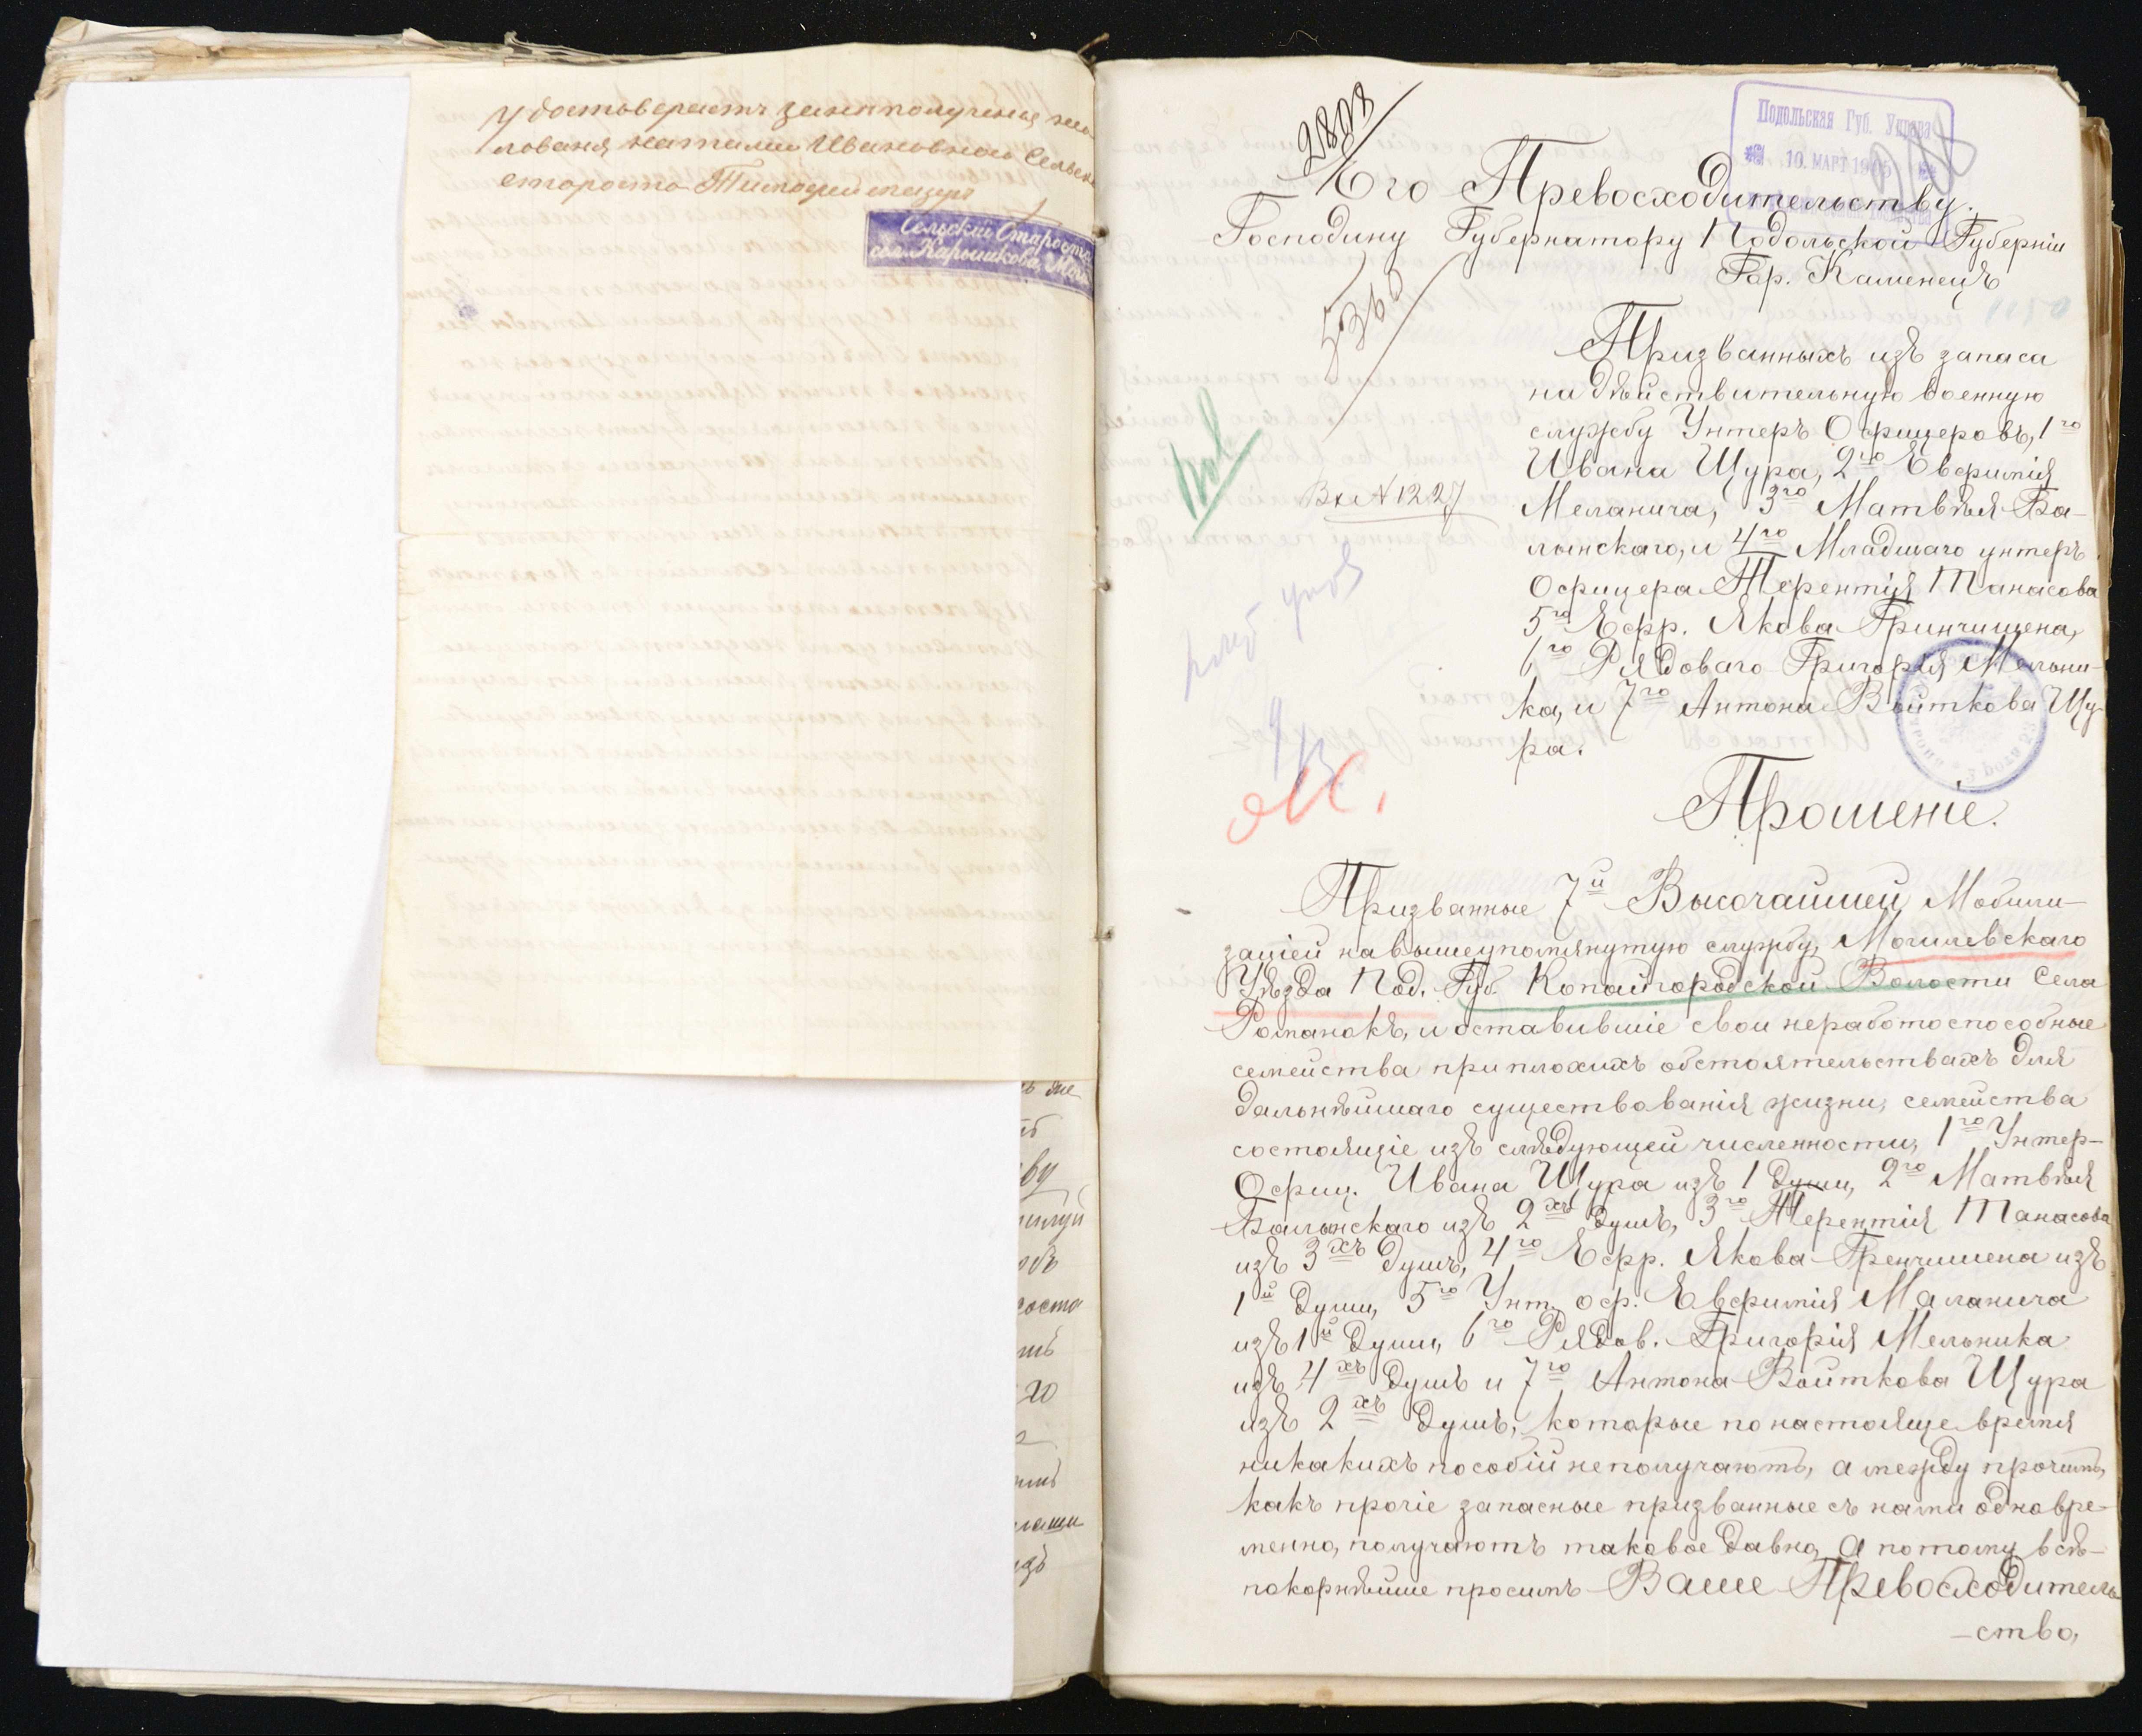 удостоверяетъ
лованя Ивановною Сельски
староста Тимофей
Сельскій Староста
сел. Карышкова, Мог
2808
Подольская Губ. Управа
10. МАРТ 1905
Его Превосходительству
Господину Губернатору Подольской Губерніи
Гор. Каменецъ
5360
Призванныхъ изъ запаса
на дѣйствительную военную
службу Унтеръ Офицеровъ, 1го
Ивана Щура, 2го Евфимія
Вх N 1227
Меланича, 3го Матвѣя Ба-
лынскаго, и 4го Младшаго унтеръ
Офицера Терентія Танасова
5го Ефр. Якова Гринчишена,
6го Рядоваго Григорія Мельни-
ка, и 7го Антона Войткова Щу-
ра.
Прошеніе.
Призванные 7й Высочайшей Мобили-
заціей на вышеупомянутую службу, Могилевскаго
Уѣзда Под. Губ. Копайгородской Волости Села
Романокъ, и оставившіе свои неработоспособные
семейства при плохихъ обстоятельствахъ для
дальнѣйшаго существованія жизни, семейства
состоящіе изъ слѣдующей численности, 1го Унтер-
Офиц. Ивана Щура изъ 1 души, 2го Матвѣя
Балынскаго изъ 2хъ душъ, 3го Терентія Танасова
изъ 3хъ душъ, 4го Ефр. Якова Гренчишена изъ
1й души, 5го Унт. оф. Евфимія Маланича
изъ 1й души, 6го Рядов. Григорія Мельника
изъ 4хъ душъ и 7го Антона Войткова Щура
изъ 2хъ душъ, которые по настояще время
никакихъ пособій неполучаютъ, а между прочимъ,
какъ прочіе запасные призванные съ нами одновре-
менно, получаютъ таковое давно, а потому всѣ-
покорнѣйше просимъ Ваше Превосходитель-
-ство,